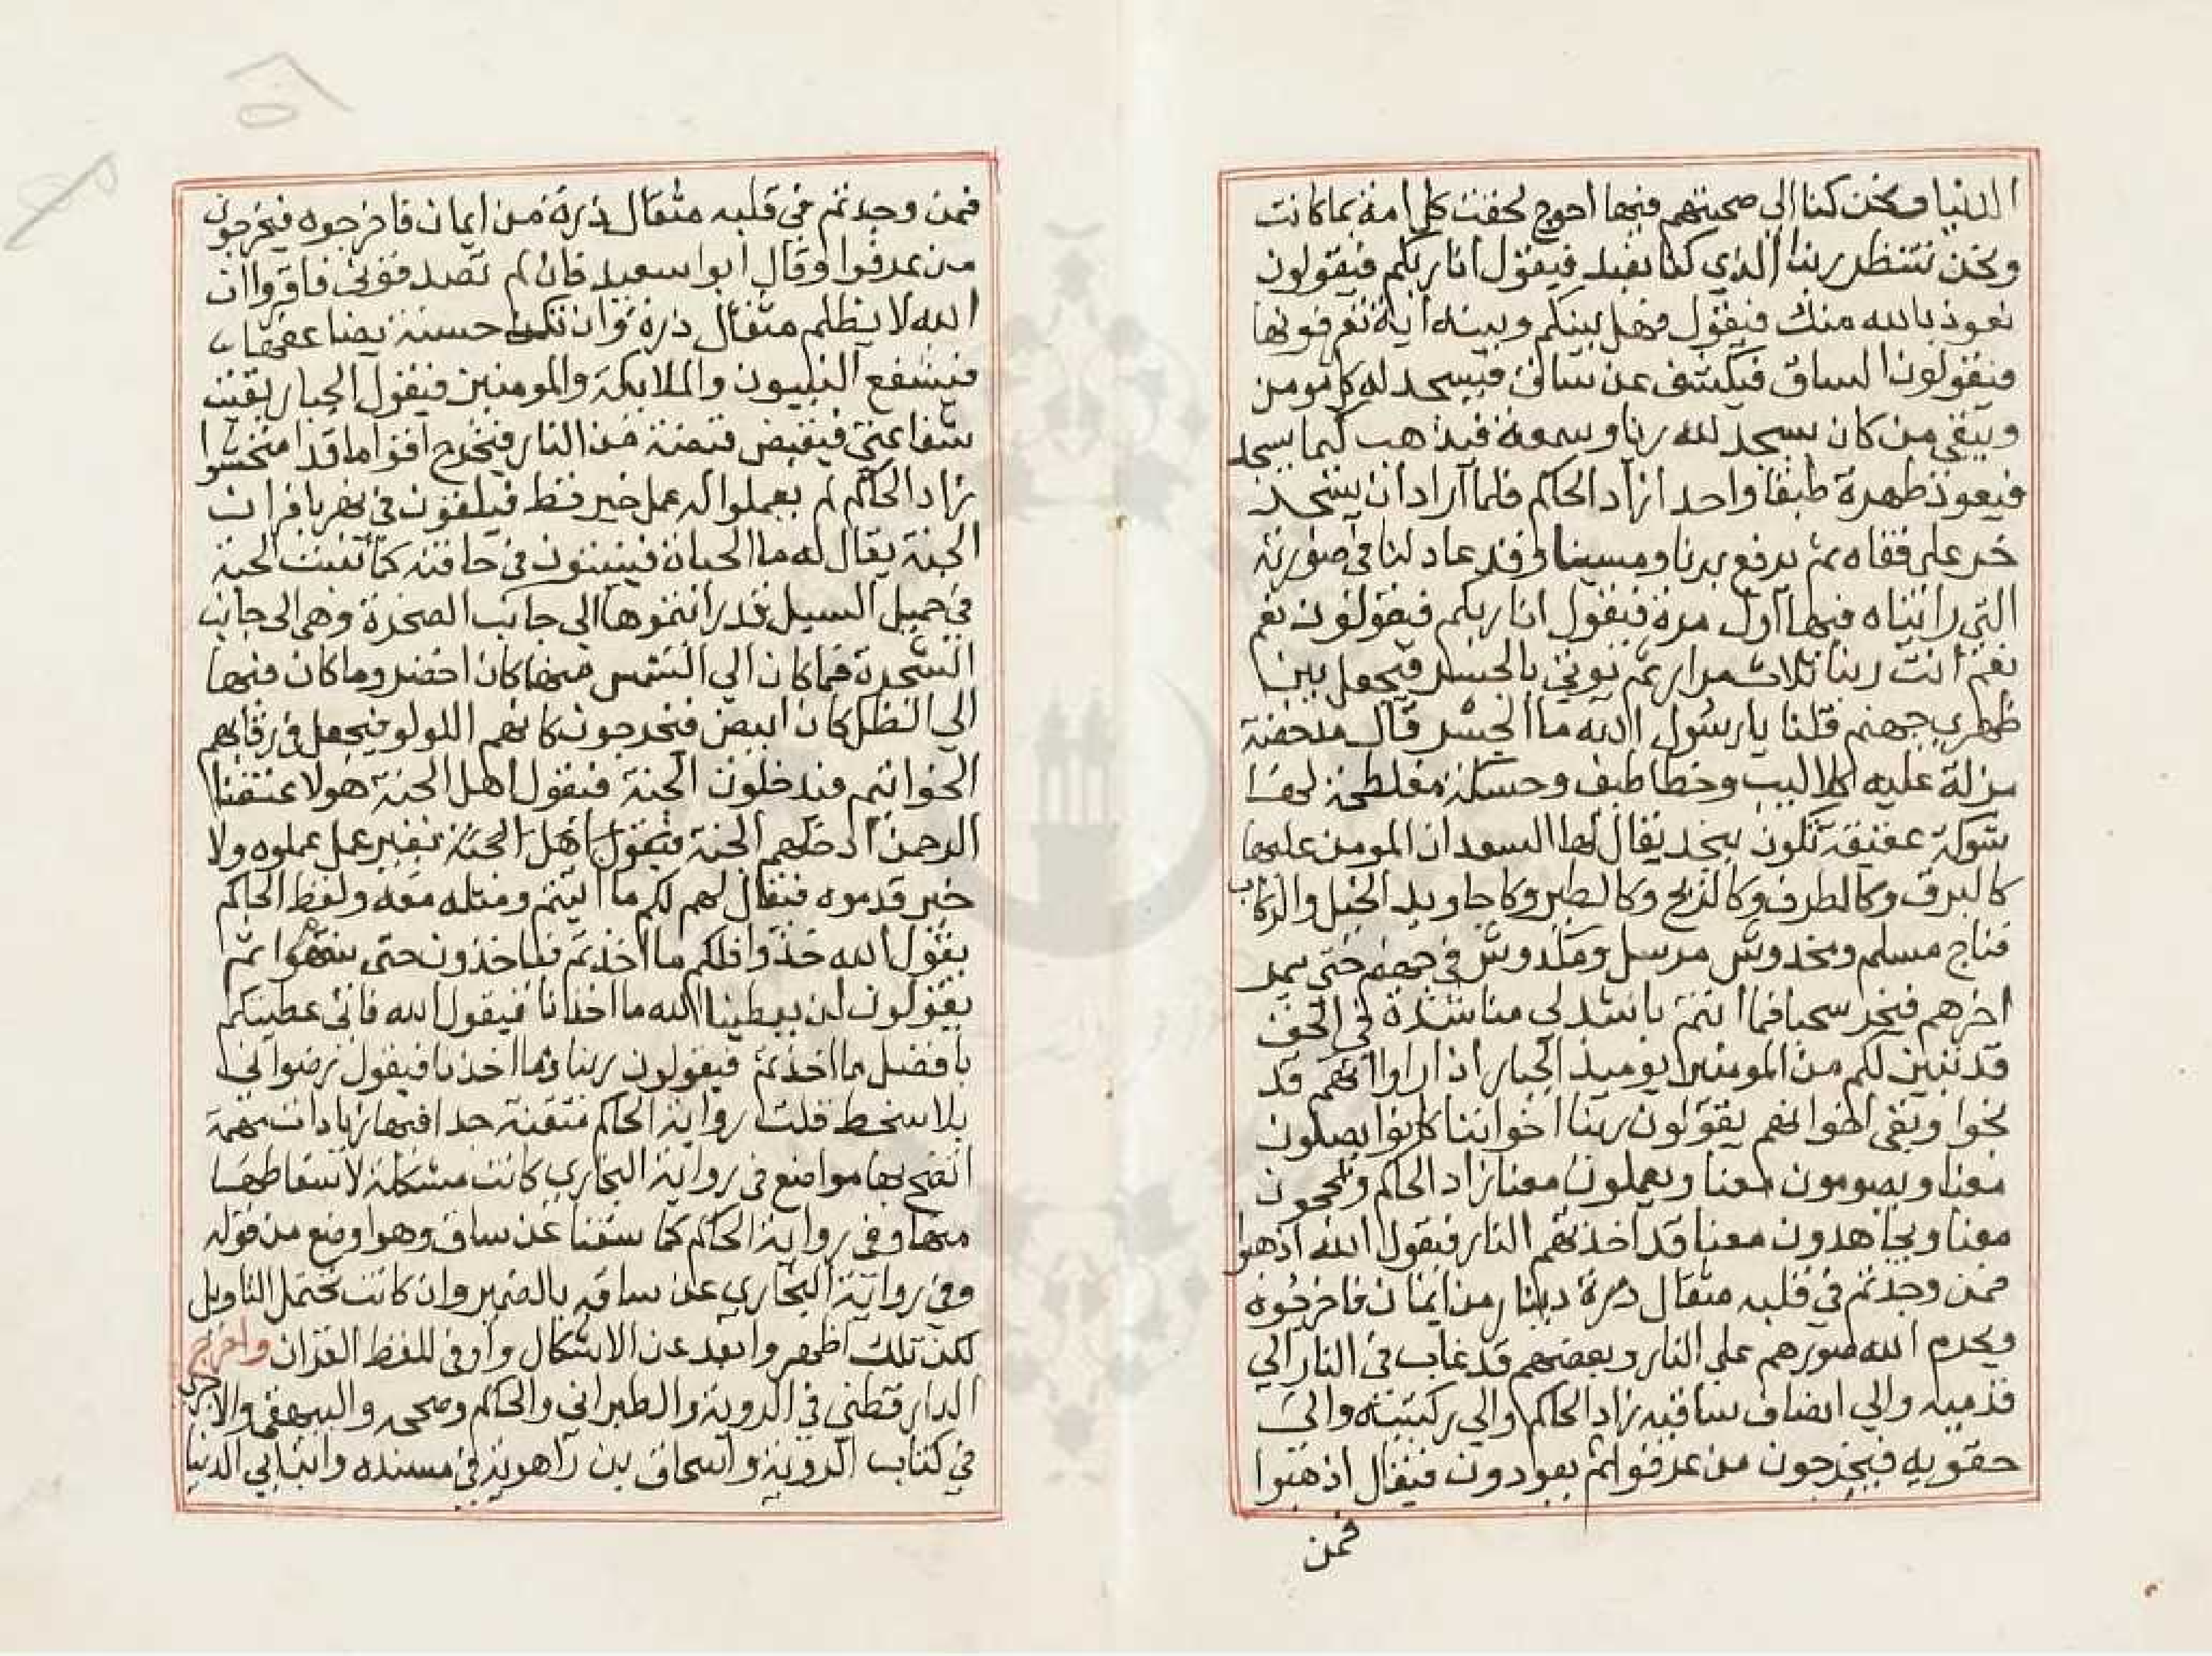 الدنيا ونحن كنا الي صحبتهم فيها احوج لحقت كل امة بما كانت
ونحن ننتظر ربنا الذي كنا نعبد فيقول انا ربكم فيقولون
نعوذ بالله منك فيقول فهل بينكم وبينه اية تعرفونها
فيقولون الساق فيكشف عن ساق فيسجد له كل مومن
ويبقي من كان يسجد لله ريا وسمعة فيذهب كيما يسجد
فيعود ظهره طبقا واحدا زاد الحاكم فلما اراد ان يسجد
خر علي قفاه ثم يرفع برنا ومسينا وقد عاد لنا في صورته
التي رايناه فيها اول مرة فيقول انا ربكم فيقولون نعم
نعم انت ربنا ثلاث مرار ثم يوتي بالجسر فيجعل بين
ظهري جهنم قلنا يا رسول الله ما الجسر قال مدحضة
مزلة عليه كلاليب وخطاطيف وحسكة مفلطحة لها
شوكة عقيقة تكون بنجد يقال لها السعدان المومن عليها
كالبرق وكالطرف وكالريح وكالطير وكاجاويد الخيل والركاب
فناج مسلم ومخدوش مرسل ومكدوش في جهنم حتى يمر
اخرهم فيخر سحبا فما انتم باشد لي مناشدة في الحق
قد تبين لكم من المومنين يوميذ الجبار اذا راوا انهم قد
نجوا وبقي اخوانهم يقولون ربنا اخواننا كانوا يصلون
معنا ويصومون معنا ويعملون معنا زاد الحاكم ويحجون
معنا ويجاهدون معنا قد اخذتهم النار فيقول الله اذهبوا
فمن وجدتم في قلبه مثقال ذرة دينار من ايمان فاخرجوه
ويحرم الله صورهم علي النار وبعضهم قد غاب في النار الي
قدميه والي انصاف ساقيه زاد الحاكم والي ركبتيه والي
حقويه فيخرجون من عرفوا ثم يعودون فيقال اذهبوا
فمن
فمن وجدتم في قلبه مثقال ذرة من ايمان فاخرجوه فيخرجون
من عرفوا وقال ابوا سعيد فان لم تصدقوني فاقروا ان
الله لا يظلم مثقال ذرة وان تك حسنة يضاعفها
فيشفع النبيون والملايكة والمومنين فيقول الجبار بقيت
شفاعتي فيقبض قبضة من النار فيخرج اقواما قد امتحشوا
زاد الحاكم لم يعملوا له عمل خير قط فيلقون في نهر بافراث
الجنة يقال له ما الحياة فينبتون في حافته كما تنبت الحبة
في حميل السيل قد رايتموها الي جانب الصخرة وهي الى جانب
الشجرة فما كان الي الشمس منها كان اخضر وما كان فيها
الي الظل كان ابيض فيخرجون كانهم اللولو فيجعل في رقابهم
الخواتيم فيدخلون الجنة فيقول اهل الجنة هولا عتقنا
الرحمن ادخلهم الجنة فيقول اهل الجنة بغير عمل عملوه ولا
خير قدموه فيقال لهم لكم ما اتيتم ومثله معه ولفظ الحاكم
يقول الله خذوا فلكم ما اخذتم فياخذون حتى ينتهوا ثم
يقولون لن يعطينا الله ما اخذنا فيقول الله فاني عطيتكم
بافضل ما اخذتم فيقولون ربنا وما اخذنا فيقول رضواني
بلا سخط قلت رواية الحاكم متقنة جدا فيها زيادات مهمة
اتضح بها مواضع في رواية البخاري كانت مشكلة لاسقاطها
منها وفي رواية الحاكم كما سقنا عن ساق وهو اوضع من قوله
وفي رواية البخاري عن ساقه بالضمير وان كانت تحتمل التاويل
لكن تلك اظهر وابعد عن الاشكال واوفى للفظ القران واخرج
الدارقطني في الروية والطبراني والحاكم وصححه والبيهقي والاجري
في كتاب الروية واسحاق بن راهوية في مسنده وابن ابي الدنيا